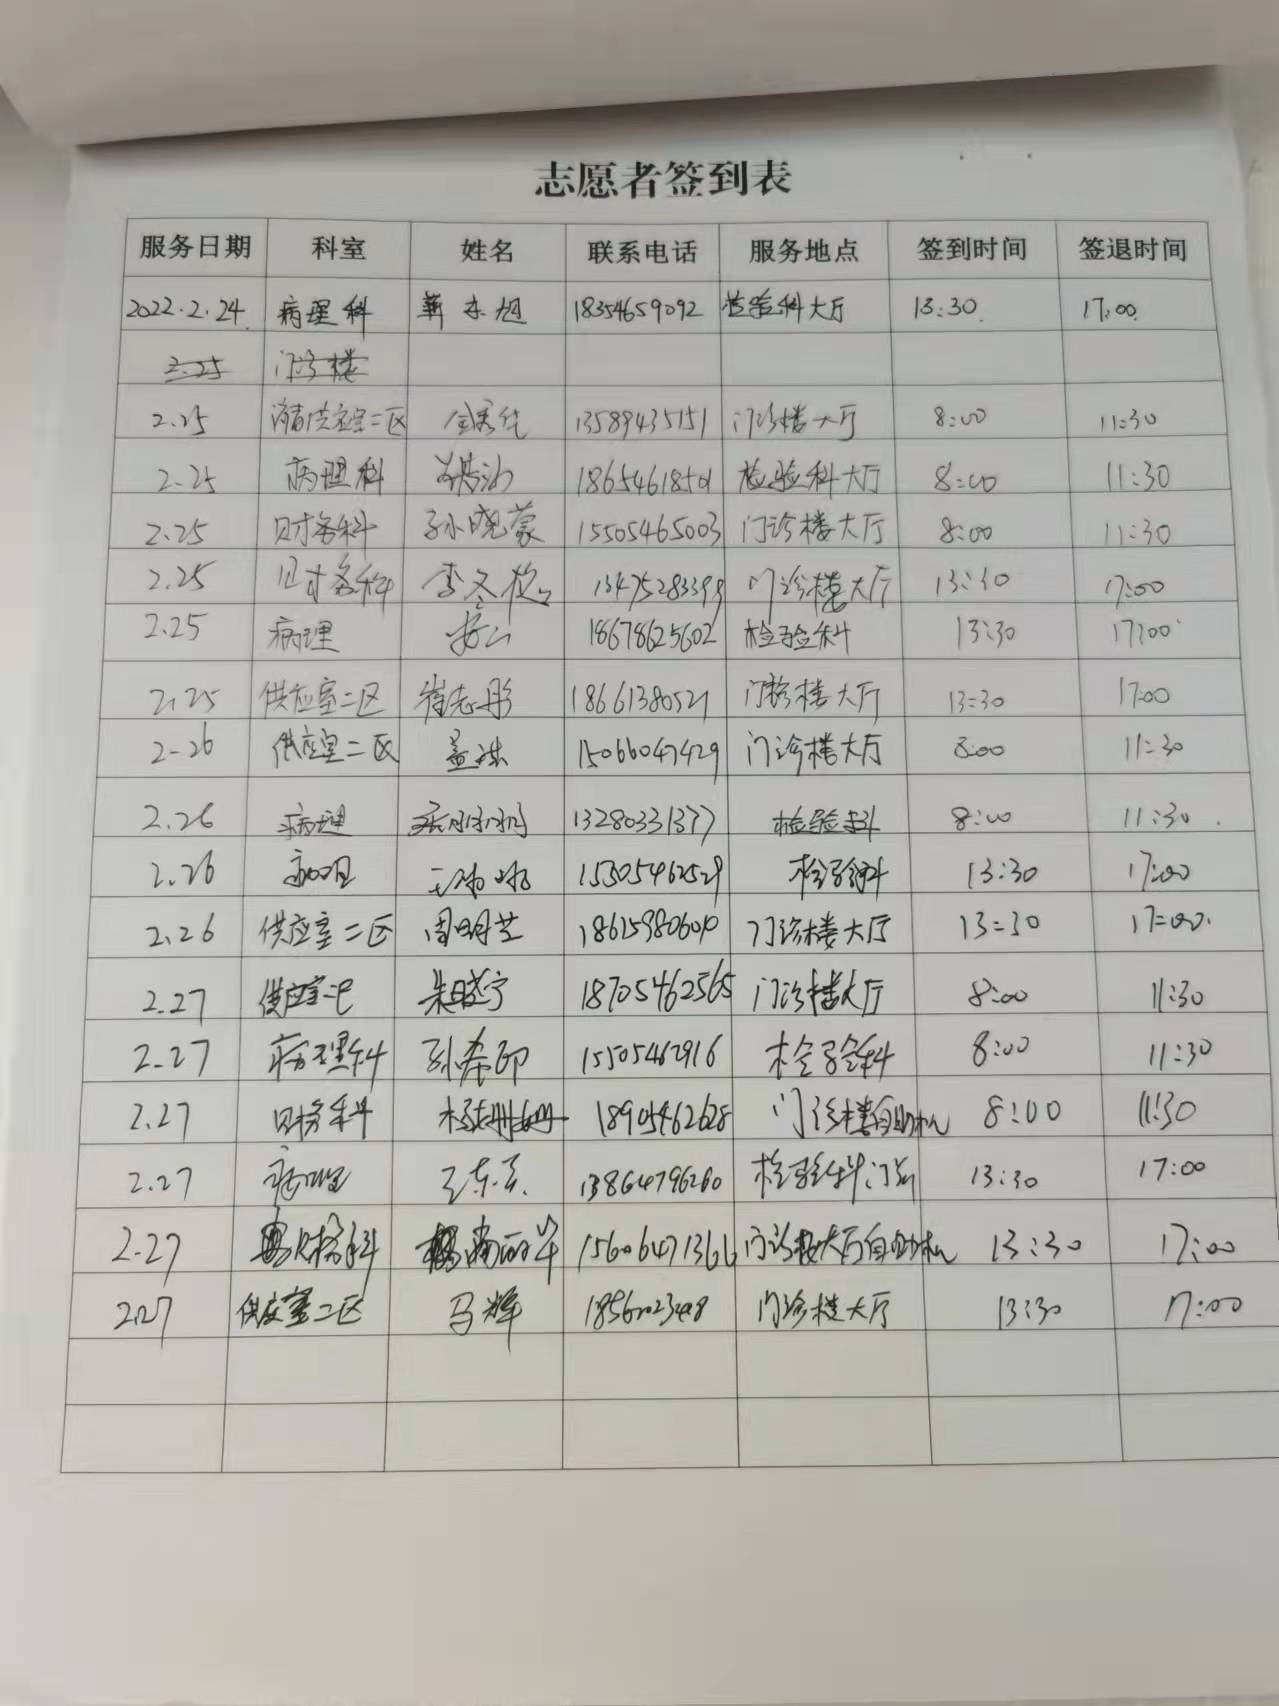 志愿者签到表
服务日期 科室 姓名 联系电话 服务地点 签到时间 签退时间
2022.2.24. 病理科 18354659092 检验科大厅 13:30. 17:00.
2.25 门诊楼
2.25 消毒供应室二区 13589435151 门诊楼大厅 8:00 11:30
2.25 病理科 18654618501 检验科大厅 8:00 11:30
2.25 财务科 孙晓蒙 15505465003 门诊楼大厅 8:00 11:30
2.25 财务科 李冬 门诊楼大厅 13:30 17:00
2.25 病理 18678625602 检验科 13:30 17:00
2.25 供应室二区 崔志彤 18661380521 门诊楼大厅 13:30 17:00
2-26 供应室二区 孟 15066047429 门诊楼大厅 8:00 11:30
2.26 病理 13280331377 检验科 8:00 11:30.
2.26 病理 15305462529 检验科 13:30 17:00
2.26 供应室二区 周明芝 门诊楼大厅 13:30 17:00.
2.27 供应室二区 朱晓宁 18705462565 门诊楼大厅 8:00 11:30
2.27 病理科 孙希 15505462916 检验科 8:00 11:30
2.27 财务科 杨姗姗 18905462628 门诊楼自助机 8:00 11:30
2.27 病理 王东 13864796260 检验科门诊 13:30 17:00
2.27 财务科 15606471366 门诊楼大厅自助机 13:30 17:00
2.27 供应室二区 马辉 门诊楼大厅 13:30 17:00